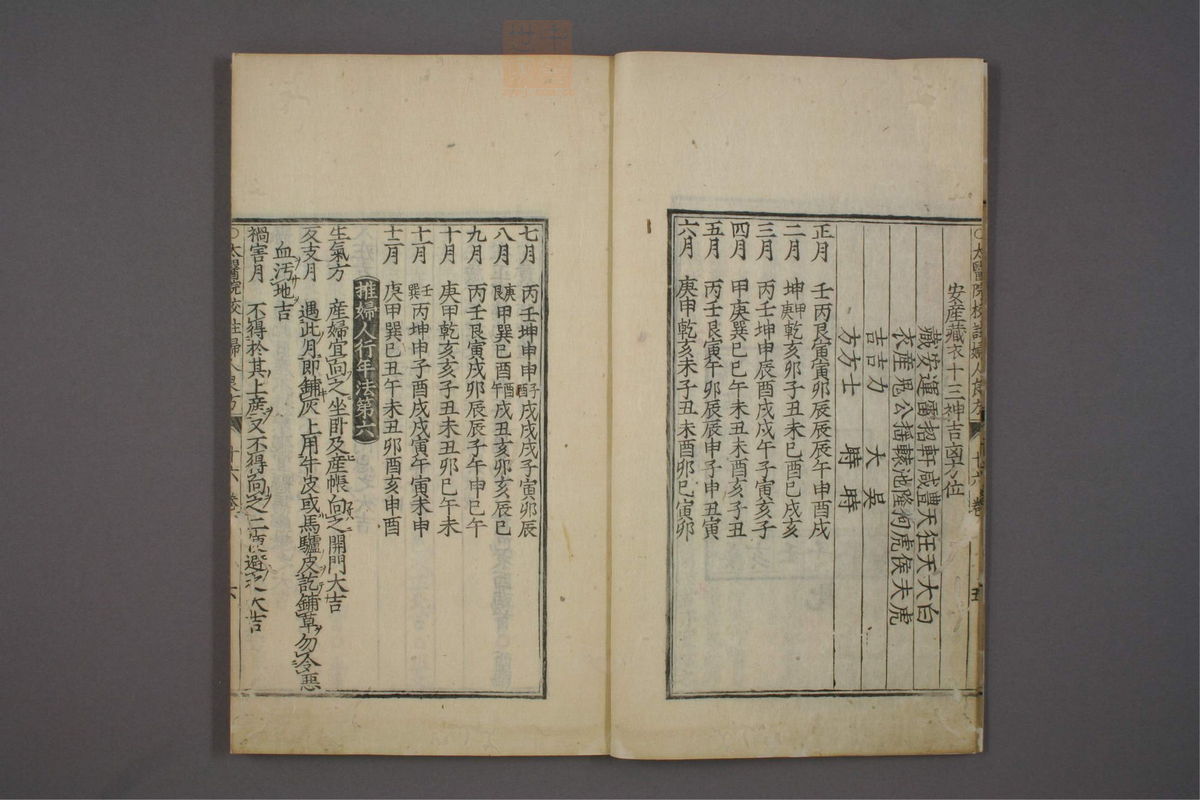 安産藏衣十三神吉凶方位
藏安運雷招軒咸豊天狂天大白
衣産鬼公揺轅池隆狗虎侯夫虎
吉吉力 大吳
方方士 時時
正月 壬丙艮寅寅卯辰辰辰午申酉戌
二月 坤甲庚乾亥卯子丑未巳酉巳戌亥
三月 丙壬坤申辰酉戌戌午子寅亥子
四月 甲庚巽巳巳午未丑未亥子丑
五月 丙壬艮寅午卯辰辰申子丑寅
六月 庚甲乾亥未子丑未酉卯巳寅卯
七月 丙壬坤申申子酉戌戌戌子寅卯辰
八月 庚艮甲巽巳酉酉午戌丑亥卯亥辰巳
九月 丙壬艮寅戌卯辰辰子午申巳午
十月 庚甲乾亥亥子丑未丑卯巳午未
十一月 壬巽丙坤申子酉戌戌寅午寅未申
十二月 庚甲巽巳丑午未未卯酉亥申酉
推婦人行年法第六
生氣方 産婦宜向之坐卧及産帳向之開門大吉
反支月 遇此月即鋪灰上用牛皮或馬驢皮訖鋪草勿令惡
血汚地吉
禍害月 不得於其上産又不得向之二便避之大吉